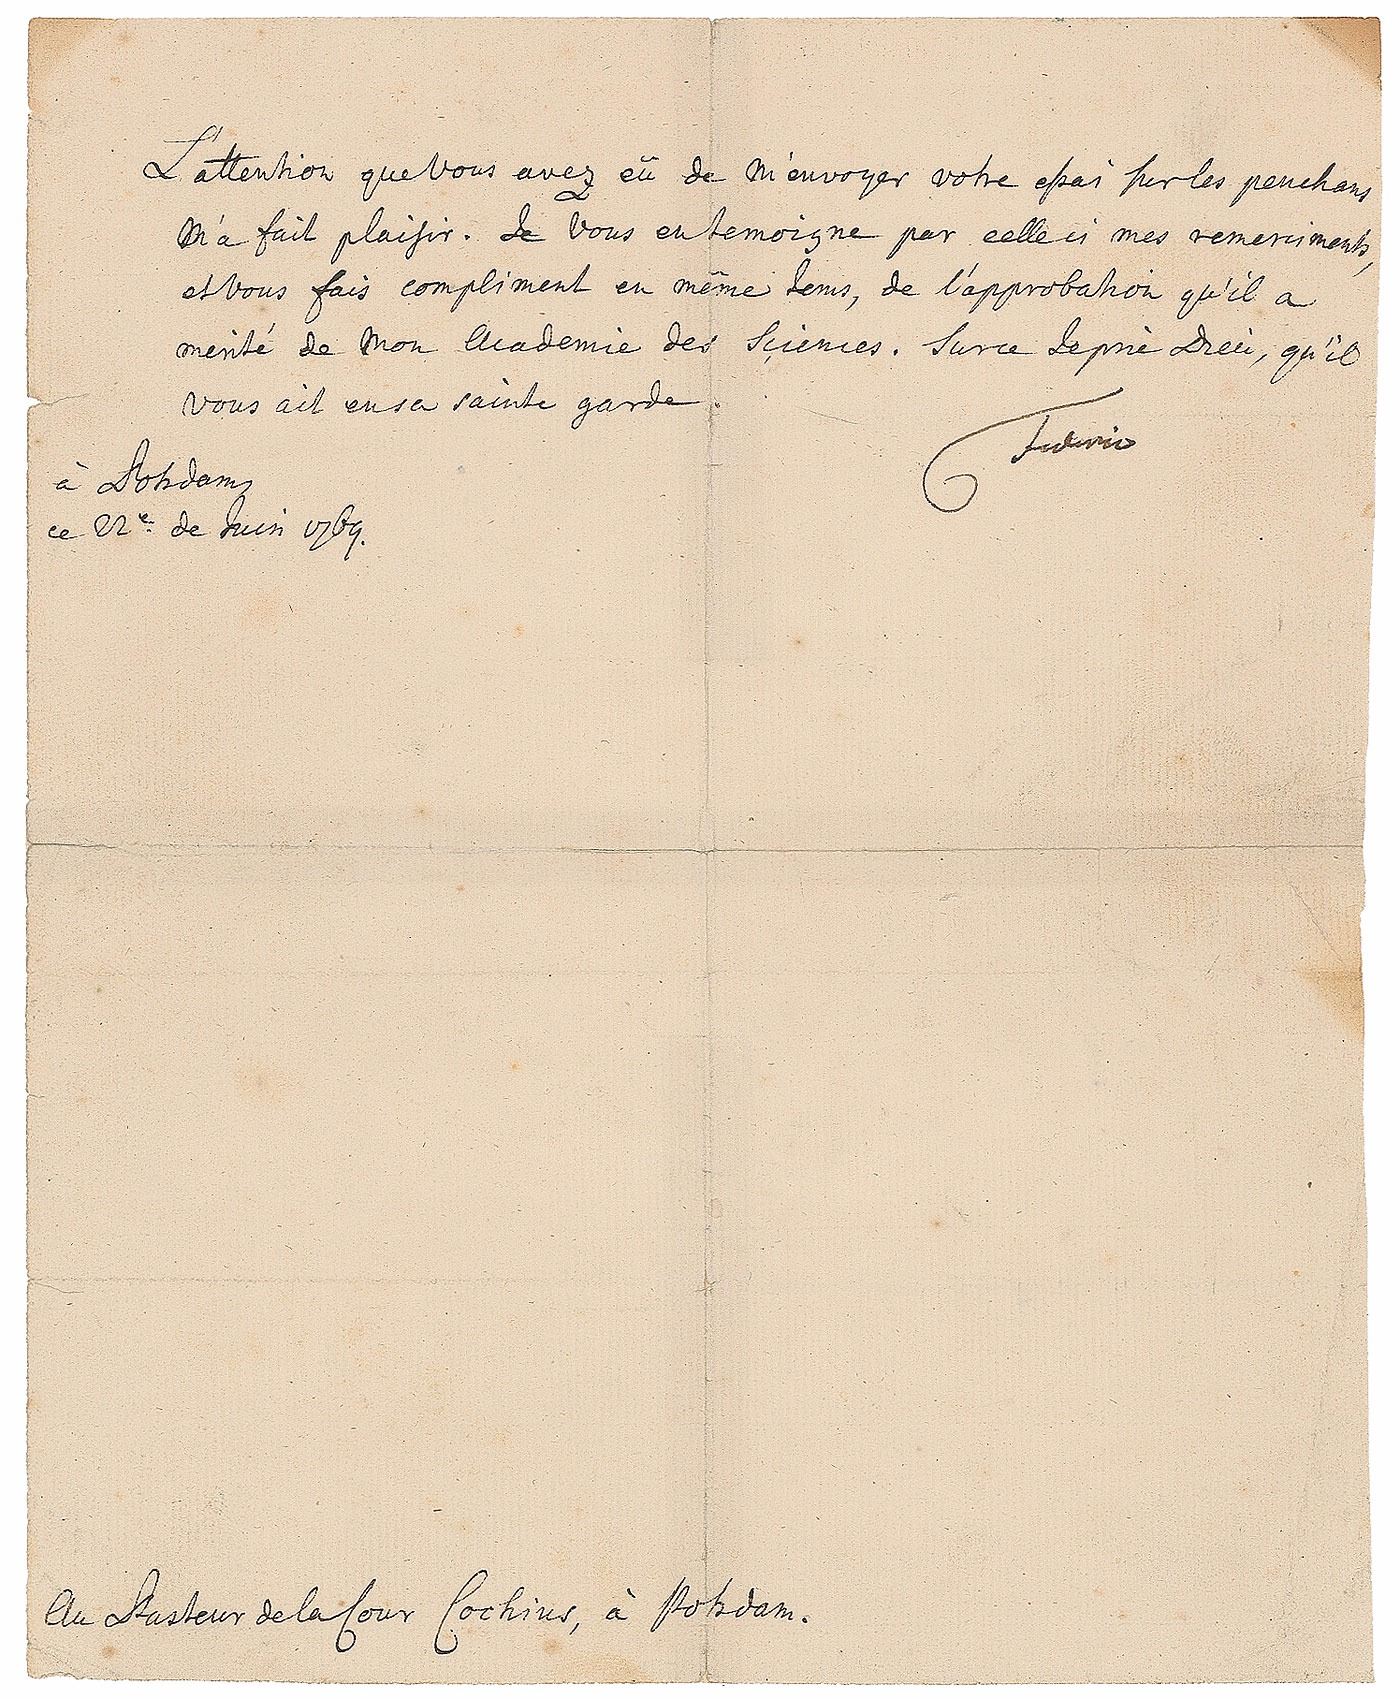 L'attention que Vous avez eü de M'envoyer votre essai sur les penchans
M'a fait plaisir. Je Vous en temoigne par celle ci mes remerciments,
et Vous fais compliment en même tems, de l'approbation qu'il a
merité de Mon Academie des Sciences. Surce Je prie Dieu, qu'il
vous ait en sa sainte garde.
Federic
à Potsdam,
ce 22e. de Juin 1769.
Au Pasteur de la Cour Cochius, à Potsdam.